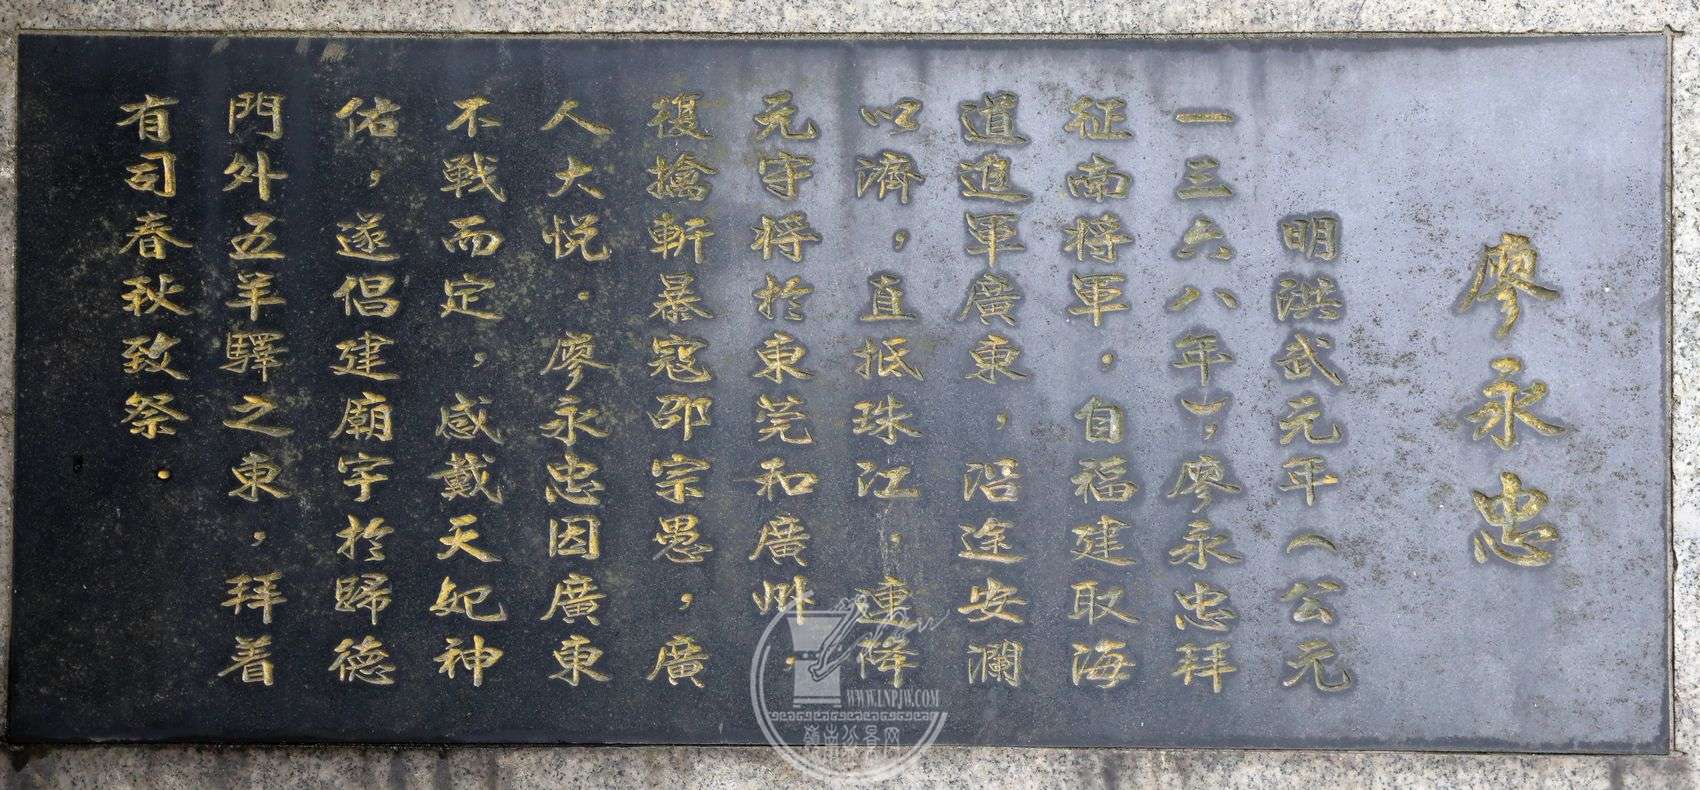 廖永忠
明洪武元年(公元
一三六八年),廖永忠拜
征南将軍,自福建取海
道進軍廣東,沿途安瀾
以濟,直抵珠江,連降
元守将於東莞和廣州,
復擒斬暴寇邵宗愚,廣
人大悦.廖永忠因廣東
不戰而定,感戴天妃神
佑,遂倡建廟宇於歸德
門外五羊驛之東,拜着
有司春秋致祭.
WWW.LNPJW.COM